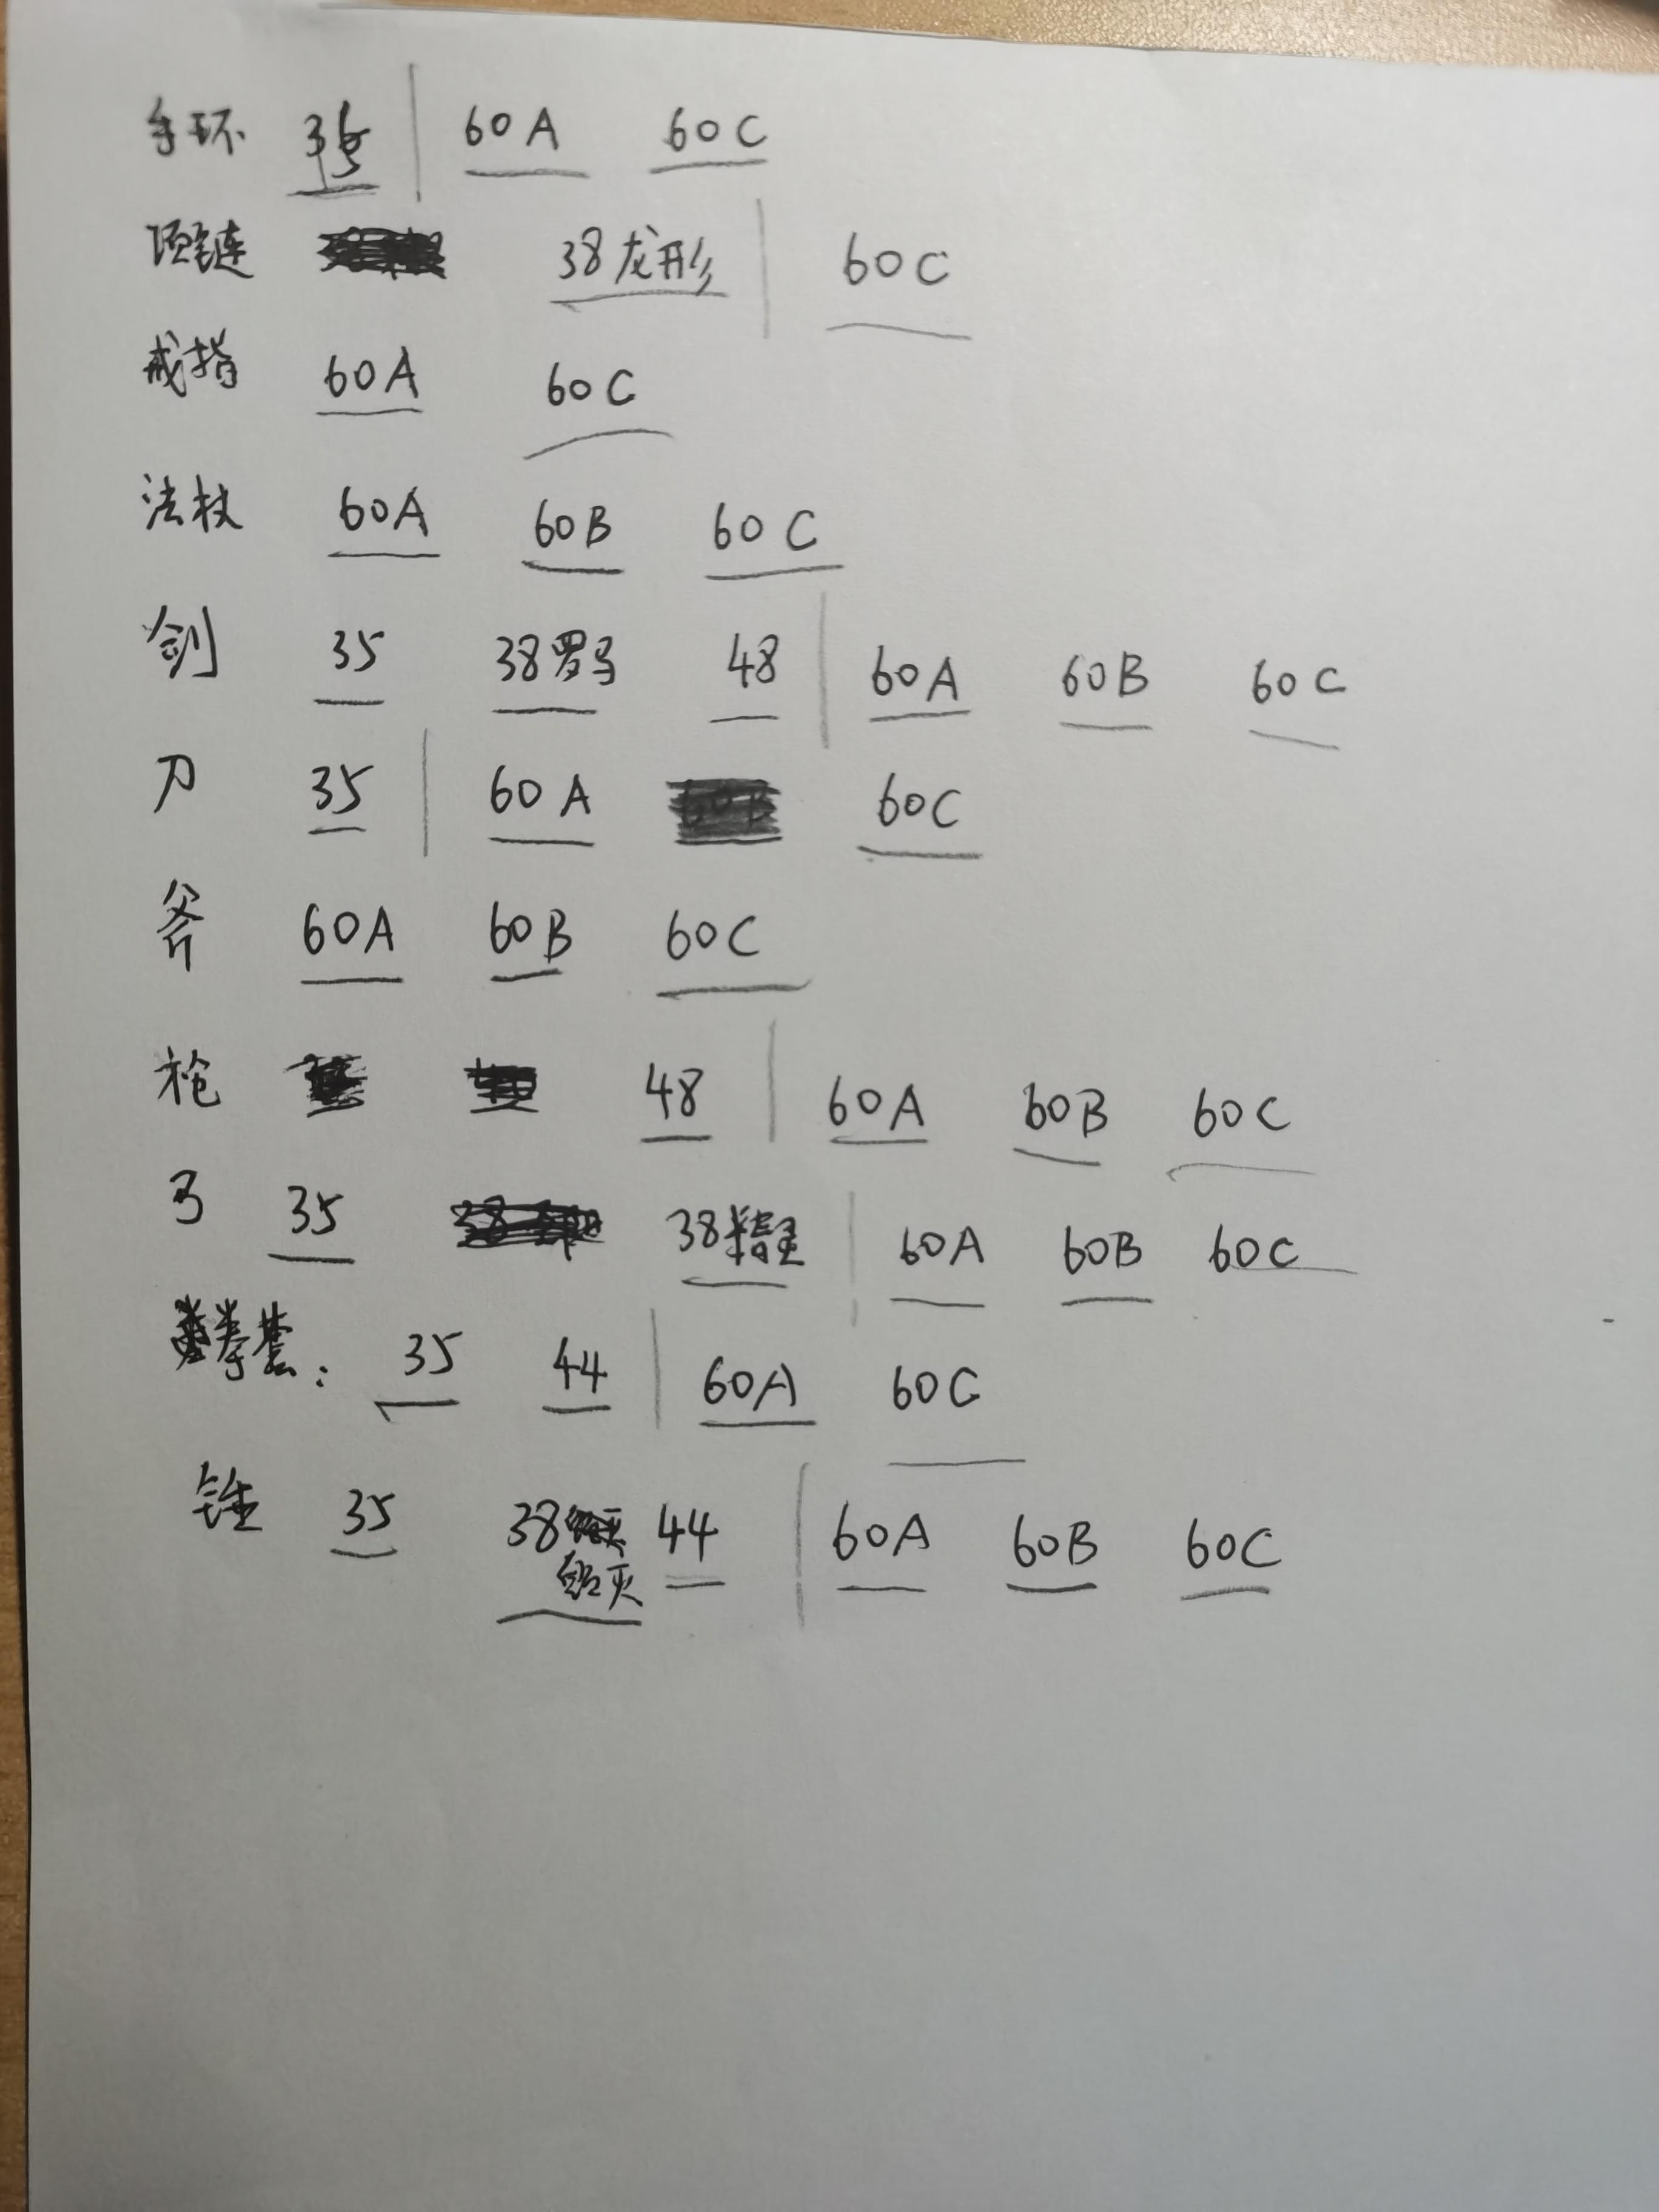 手环 35 60A 60C
项链 38龙形 60C
戒指 60A 60C
法杖 60A 60B 60C
剑 35 38罗马 48 60A 60B 60C
刀 35 60A 60B 60C
斧 60A 60B 60C
枪 48 60A 60B 60C
弓 35 38精灵 60A 60B 60C
拳套: 35 44 60A 60C
锤 35 38 44 60A 60B 60C
毁灭